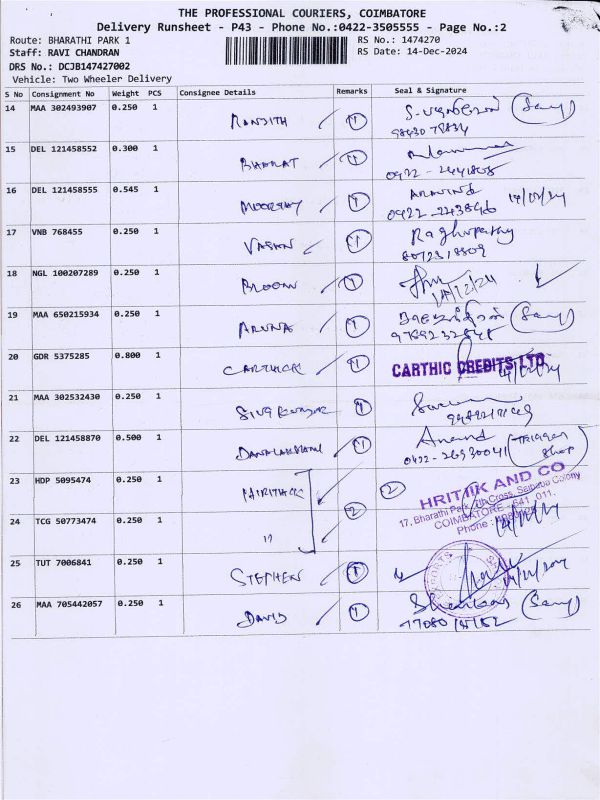 THE PROFESSIONAL COURIERS, COIMBATORE
Delivery Runsheet - P43 - Phone No.:0422-3505555 - Page No.:2
Route: BHARATHI PARK 1 RS No.: 1474270
Staff: RAVI CHANDRAN RS Date: 14-Dec-2024
DRS No.: DCJB147427002
Vehicle: Two Wheeler Delivery
S No Consignment No Weight PCS Consignee Details Remarks Seal & Signature
14 MAA 302493907 0.250 1 RANJITH 1 (Samy)
15 DEL 121458552 0.300 1 BHARAT 1
16 DEL 121458555 0.545 1 MOORTHY 1 ARAVIND
17 VNB 768455 0.250 1 VASAN 1 Raghupathy
18 NGL 100207289 0.250 1 BLOOM 1 14/12/24
19 MAA 650215934 0.250 1 ARUNA 1 (Samy)
20 GDR 5375285 0.800 1 CARTHICK 1 CARTHIC CREDITS LTD
21 MAA 302532430 0.250 1 SIVA KUMAR 1
22 DEL 121458870 0.500 1 DANALAKSHMI 1 Anand (Trigger Shop)
23 HDP 5095474 0.250 1 HRITHICK 2
HRITHIK AND CO
17, Bharathi Park, 7th Cross, Saibaba Colony
COIMBATORE - 641 011.
24 TCG 50773474 0.250 1 " 2
25 TUT 7006841 0.250 1 STEPHEN 1
26 MAA 705442057 0.250 1 DAVID 1 (Samy)